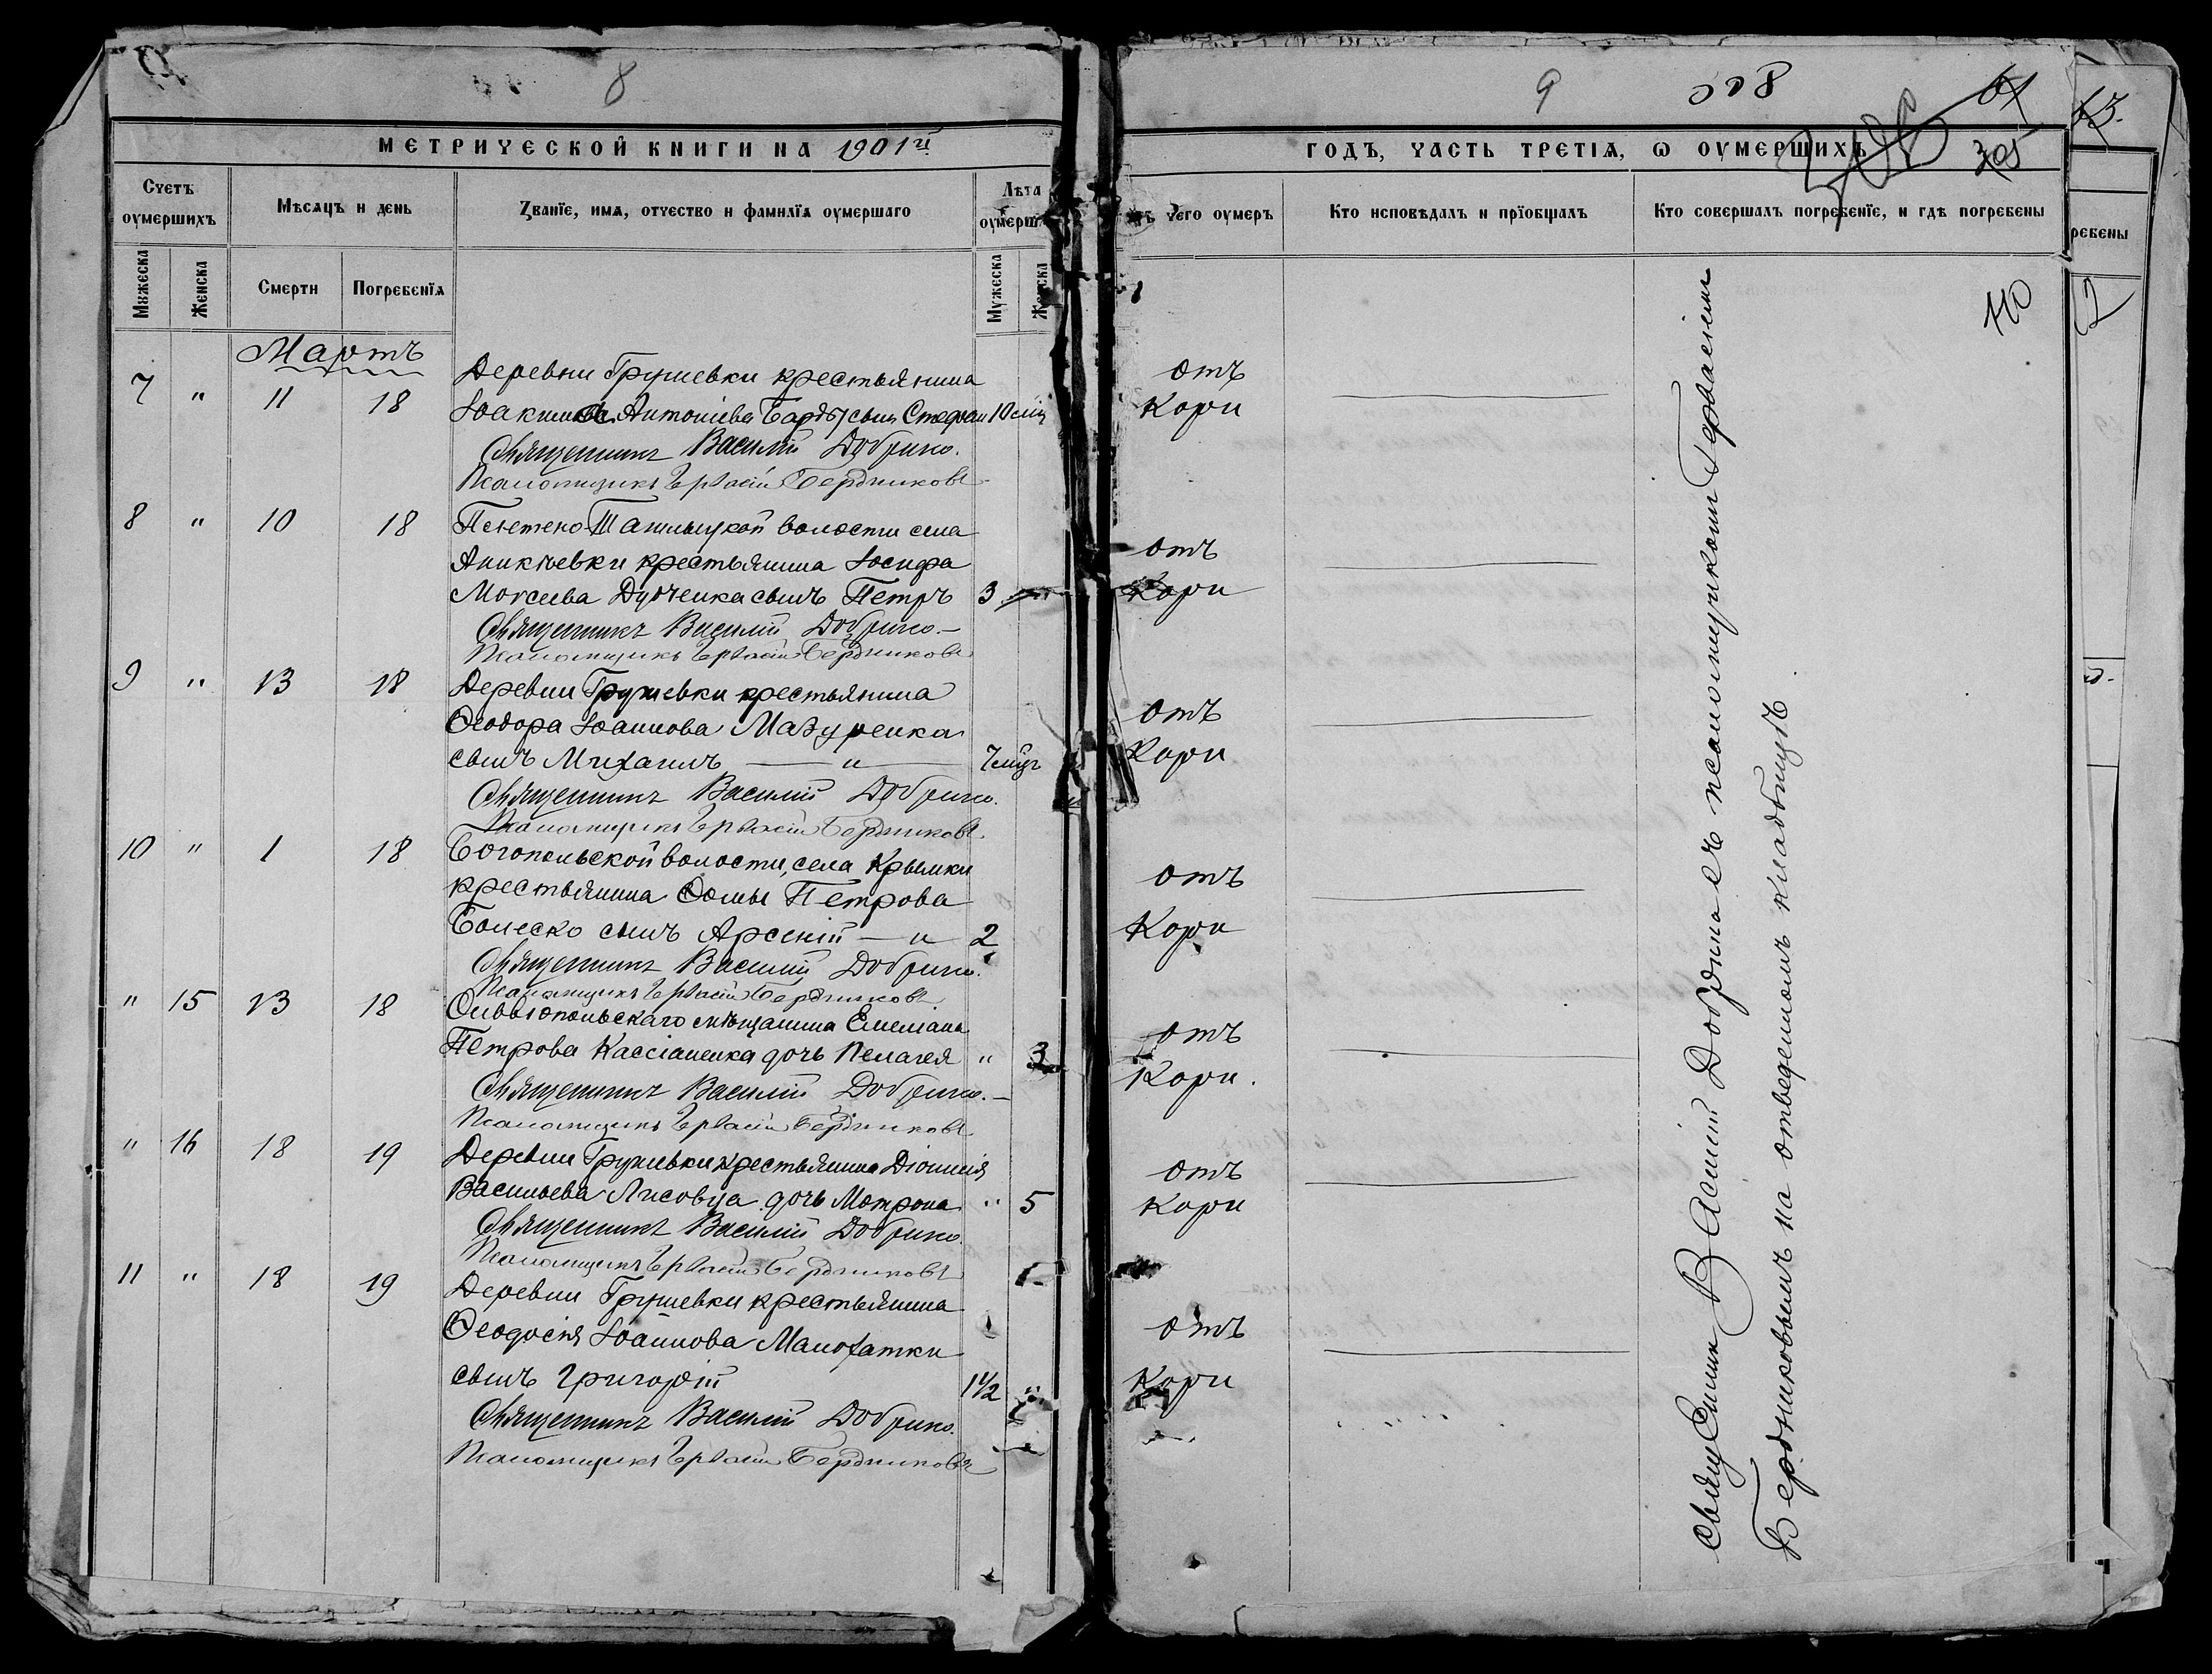 8
МЕТРИЧЕСКОЙ КНИГИ НА 1901й
Счетъ оумершихъ
Мѣсяцъ и день
Званіе, имя, отчество и фамилія оумершаго
Лѣта оумерш
Мужеска
Женска
Смерти
Погребенія
Мужеска
Женска
Мартъ
7 " 11 18 Деревни Грушевки крестьянина
Іоакима Антоніева Барды сынъ Стефан 10 мц
Священникъ Василій Добрино.
Псаломщикъ Гервасій Бердниковъ
8 " 10 18 Плетено-Ташлыцкой волости села
Аникѣевки крестьянина Іосифа
Моѵсеева Дубченка сынъ Петръ 3
Священникъ Василій Добрино.
Псаломщикъ Гервасій Бердниковъ
9 " 13 18 Деревни Грушевки крестьянина
Ѳеодора Іоаннова Мазуренка
сынъ Михаилъ — " — 7 мцъ
Священникъ Василій Добрино.
Псаломщикъ Гервасій Бердниковъ
10 " 1 18 Богопольской волости, села Крымки
крестьянина Ѳомы Петрова
Болеско сынъ Арсеній — " 2
Священникъ Василій Добрино.
Псаломщикъ Гервасій Бердниковъ
" 15 13 18 Ольвіопольскаго мѣщанина Емеліана
Петрова Кассіаненка дочь Пелагея " 3
Священникъ Василій Добрино.
Псаломщикъ Гервасій Бердниковъ
" 16 18 19 Деревни Грушевки крестьянина Діонисія
Васильева Лисовца дочь Матрона " 5
Священникъ Василій Добрино.
Псаломщикъ Гервасій Бердниковъ
11 " 18 19 Деревни Грушевки крестьянина
Ѳеодосія Іоаннова Малохатки
сынъ Григорій 1 1/2 "
Священникъ Василій Добрино.
Псаломщикъ Гервасій Бердниковъ
9
ГОДЪ, ЧАСТЬ ТРЕТІЯ, Ѡ ОУМЕРШИХЪ
305
чего оумеръ
Кто исповѣдалъ и пріобщалъ
Кто совершалъ погребеніе, и гдѣ погребены
ребены
110
отъ
Кори
отъ
Кори
отъ
Кори
отъ
Кори
отъ
Кори.
отъ
Кори
отъ
Кори
Священникъ Василій Добрино съ псаломщикомъ Гервасіемъ
Бердниковымъ на отведенномъ кладбищѣ